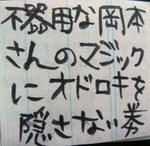 不器用な岡本
さんのマジック
にオドロキを
隠さない券